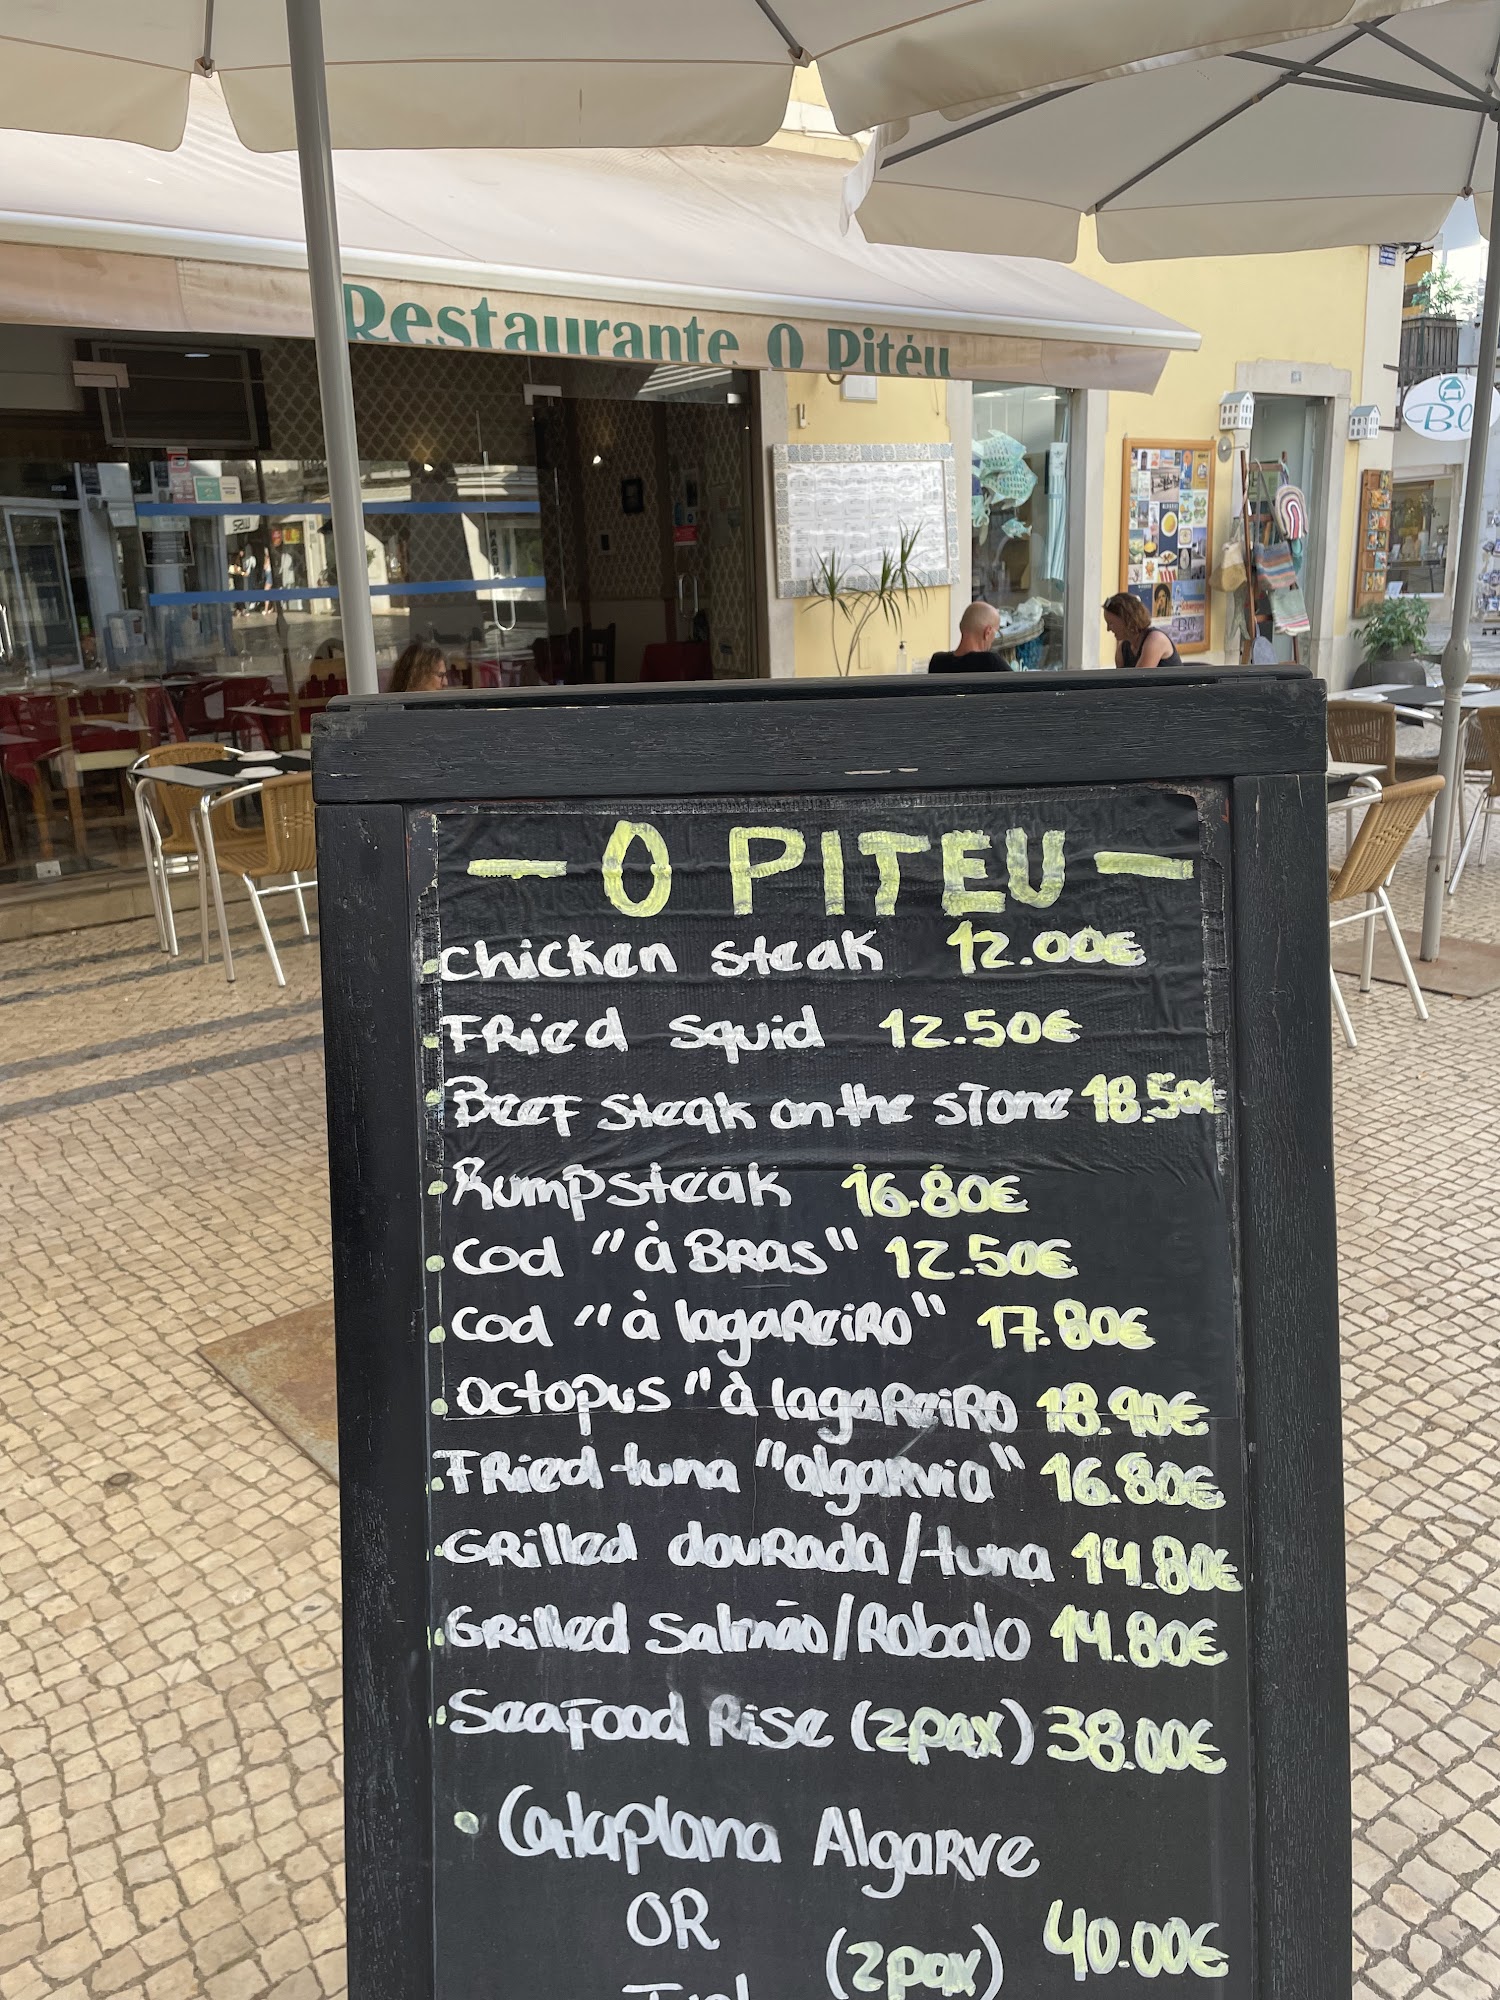 Restaurante O Pitéu
— O PITEU —
• Chicken steak 12.00€
• Fried squid 12.50€
• Beef steak on the stone 18.50€
• Rumpsteak 16.80€
• Cod "à Bras" 12.50€
• Cod "à lagareiro" 17.80€
• Octopus "à lagareiro 18.90€
• Fried tuna "algarvia" 16.80€
• Grilled dourada/tuna 14.80€
• Grilled Salmão/Robalo 14.80€
• Seafood Rise (2pax) 38.00€
• Cataplana Algarve
OR
(2pax) 40.00€